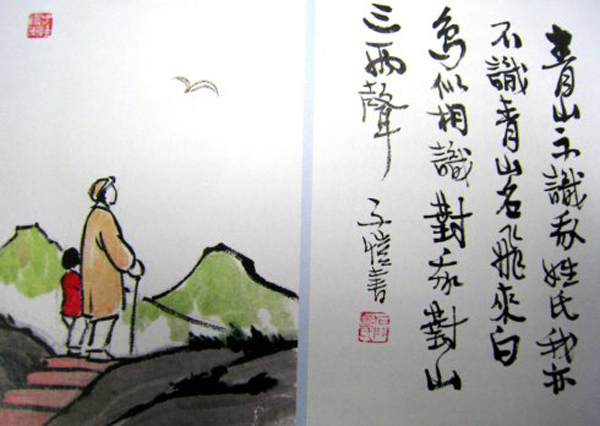 青山不識我姓氏我亦
不識青山名飛來白
鳥似相識對我對山
三兩聲
子愷書